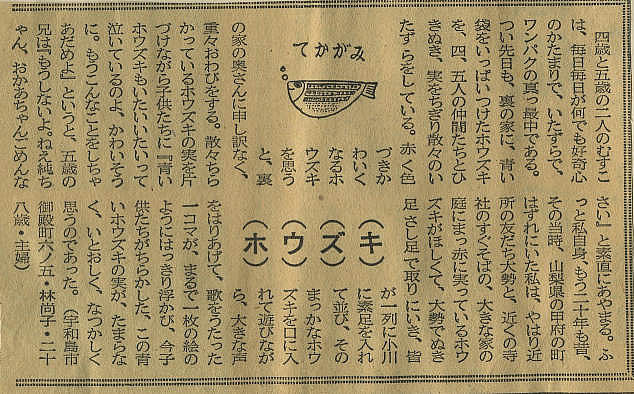 てかがみ
（ホ）（ウ）（ズ）（キ）
四歳と五歳の二人のむすこ
は、毎日毎日が何でも好奇心
のかたまりで、いたずらで、
ワンパクの真っ最中である。
つい先日も、裏の家に、青い
袋をいっぱいつけたホウズキ
を、四、五人の仲間たちとひ
きぬき、実をちぎり散々のい
たずらをしている。赤く色
づきか
わいく
なるホ
ウズキ
を思う
と、裏
の家の奥さんに申し訳なく、
重々おわびをする。散々ちら
かっているホウズキの実を片
づけながら子供たちに『青い
ホウズキもいたいいたいって
泣いているのよ、かわいそう
に。もうこんなことをしちゃ
あだめよ』というと、五歳の
兄は『もうしないよ。ねえ純ち
ゃん、おかあちゃんごめんな
さい』と素直にあやまる。ふ
っと私自身、もう二十年も昔、
その当時、山梨県の甲府の町
はずれにいた私は、やはり近
所の友だち大勢と、近くの寺
社のすぐそばの、大きな家の
庭にまっ赤に実っているホウ
ズキがほしくて、大勢でぬき
足さし足で取りにいき、皆
が一列に小川
に素足を入れ
て並び、その
まっかなホウ
ズキを口に入
れて遊びなが
ら、大きな声
をはりあげて、歌をうたった
一コマが、まるで一枚の絵の
ようにはっきり浮かび、今子
供たちがちらかした、この青
いホウズキの実が、たまらな
く、いとおしく、なつかしく
思うのであった。（宇和島市
御殿町六ノ五・林尚子・二十
八歳・主婦）